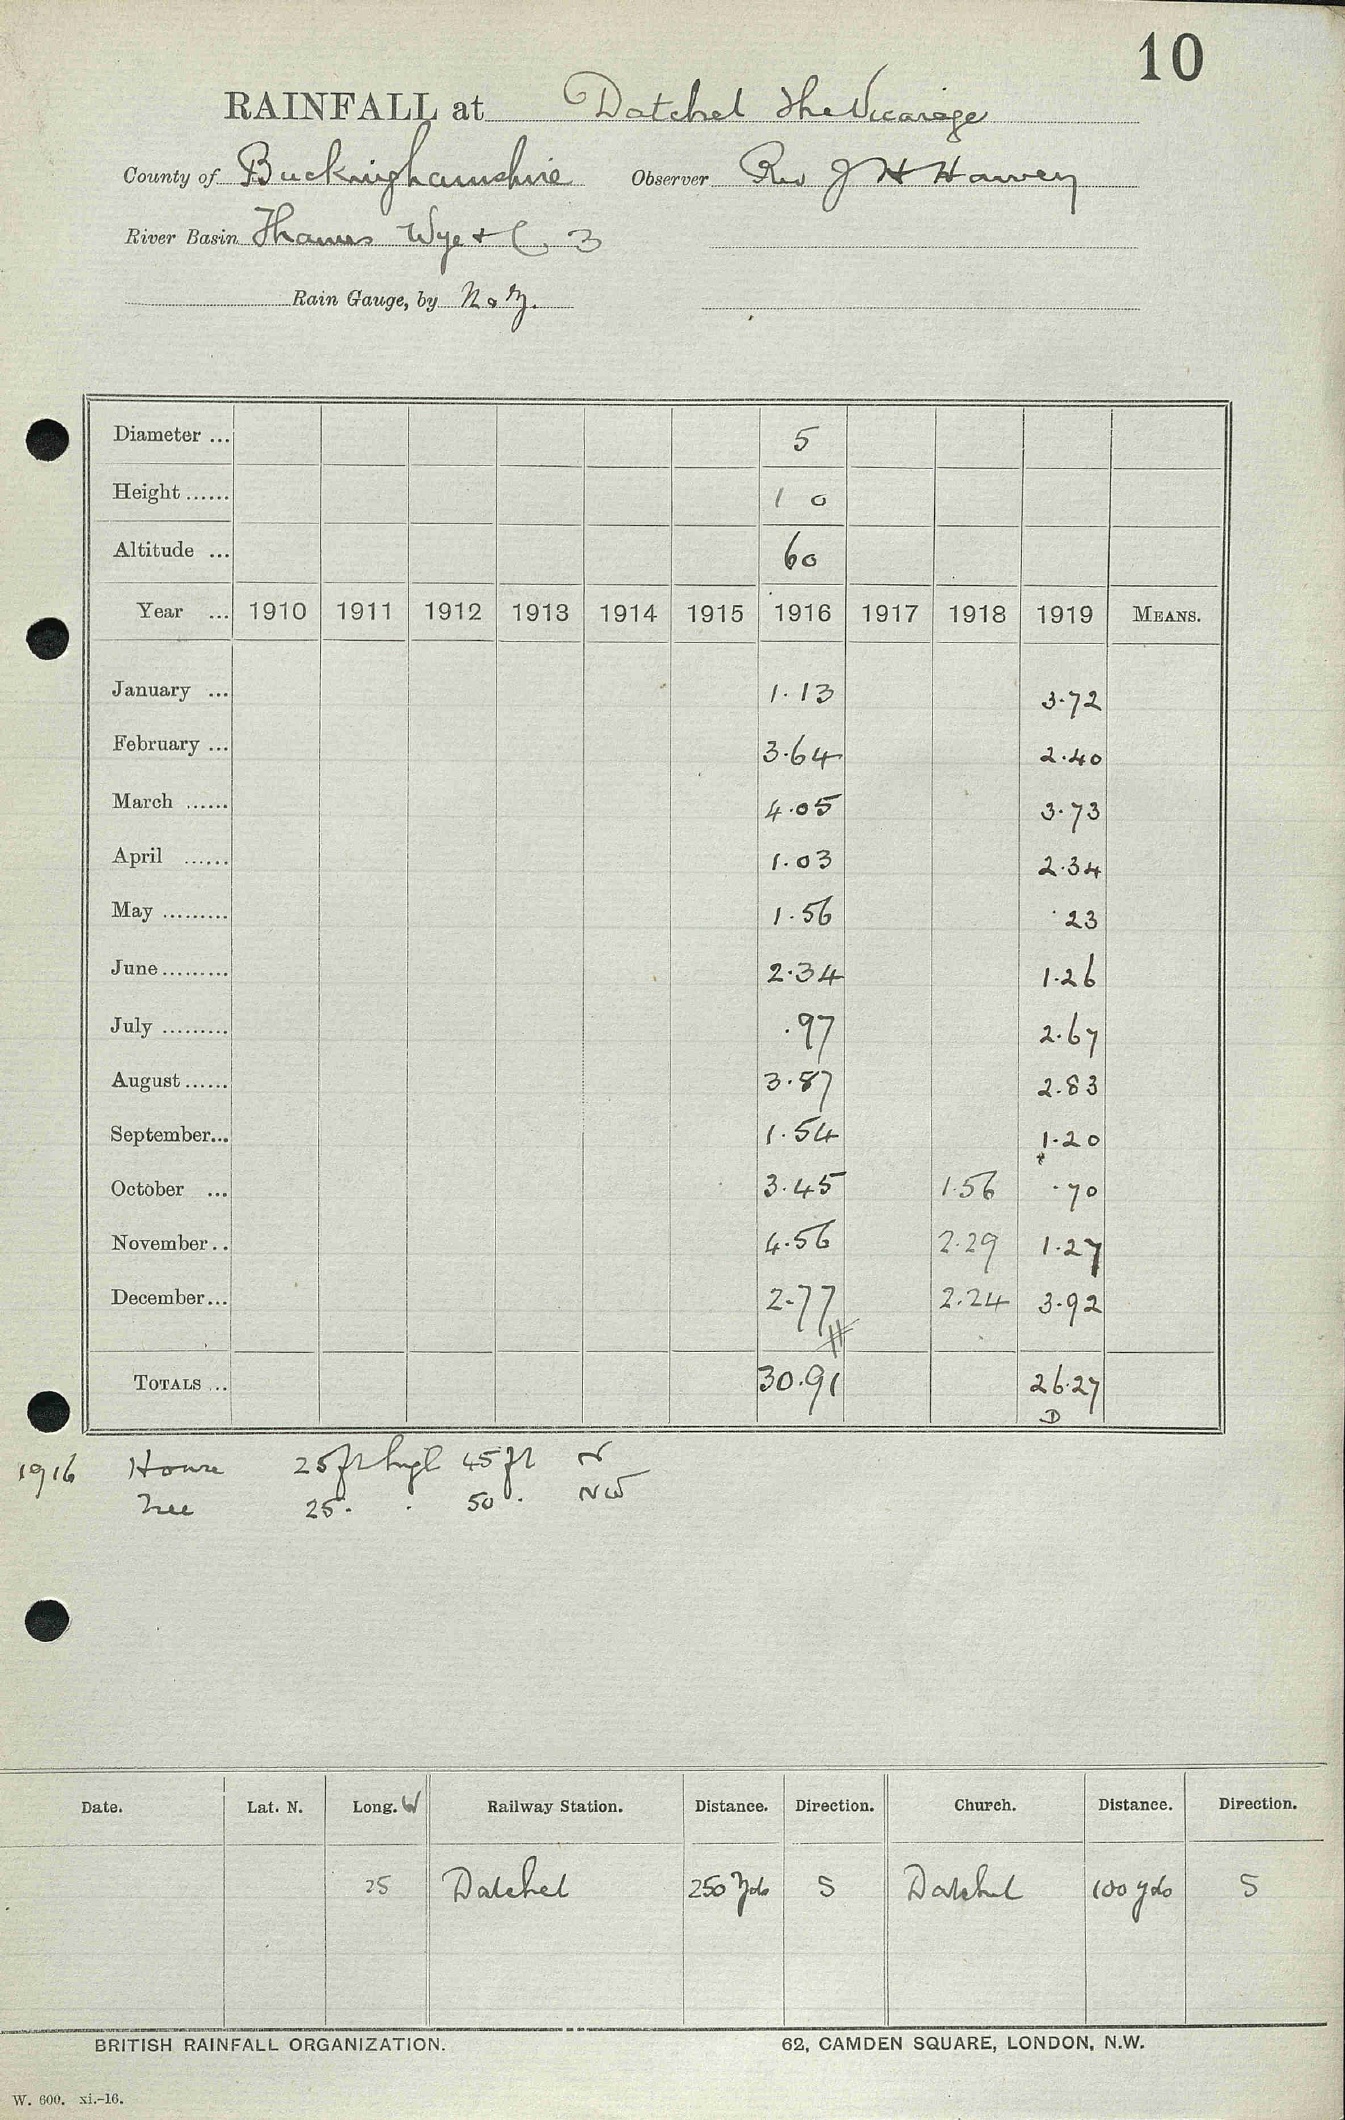 10
RAINFALL at Datchet The Vicarage
County of Buckinghamshire Observer Rev J H Harvey
River Basin Thames Wye & C. 3
Rain Gauge, by N & Z.
Diameter ... 5
Height ...... 1 0
Altitude ... 60
Year ... 1910 1911 1912 1913 1914 1915 1916 1917 1918 1919 MEANS.
January ... 1.13 3.72
February ... 3.64 2.40
March ...... 4.05 3.73
April ...... 1.03 2.34
May ......... 1.56 .23
June ......... 2.34 1.26
July ......... .97 2.67
August ...... 3.87 2.83
September... 1.54 1.20
October ... 3.45 1.56 .70
November.. 4.56 2.29 1.27
December... 2.77 2.24 3.92
TOTALS ... 30.91 26.27
D
1916 House 25 ft high 45 ft N
Tree 25 . . 50 . NW
Date. Lat. N. Long. W Railway Station. Distance. Direction. Church. Distance. Direction.
25 Datchet 250 yds S Datchet 100 yds S
BRITISH RAINFALL ORGANIZATION. 62, CAMDEN SQUARE, LONDON, N.W.
W. 600. xi.-16.